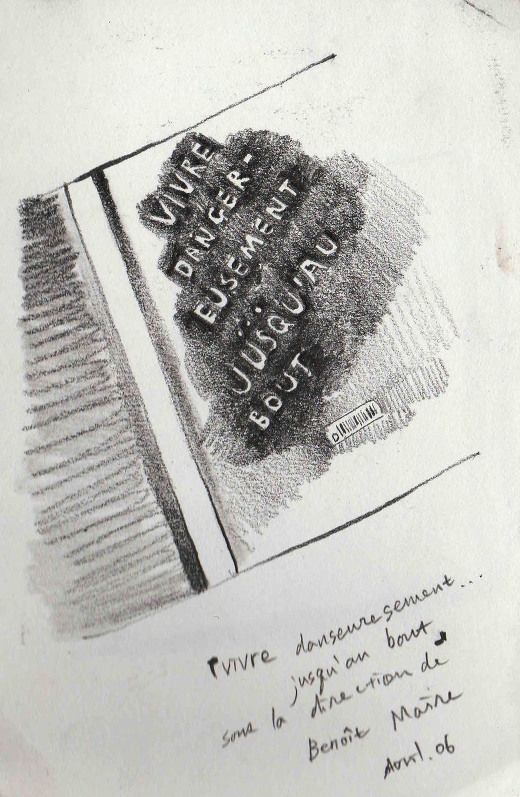 VIVRE
DANGER-
EUSEMENT
JÜSQU'AU
BOUT
vivre danseuresement...
jusqu'au bout
sous la direction de
Benoît Maire
Avril. 06